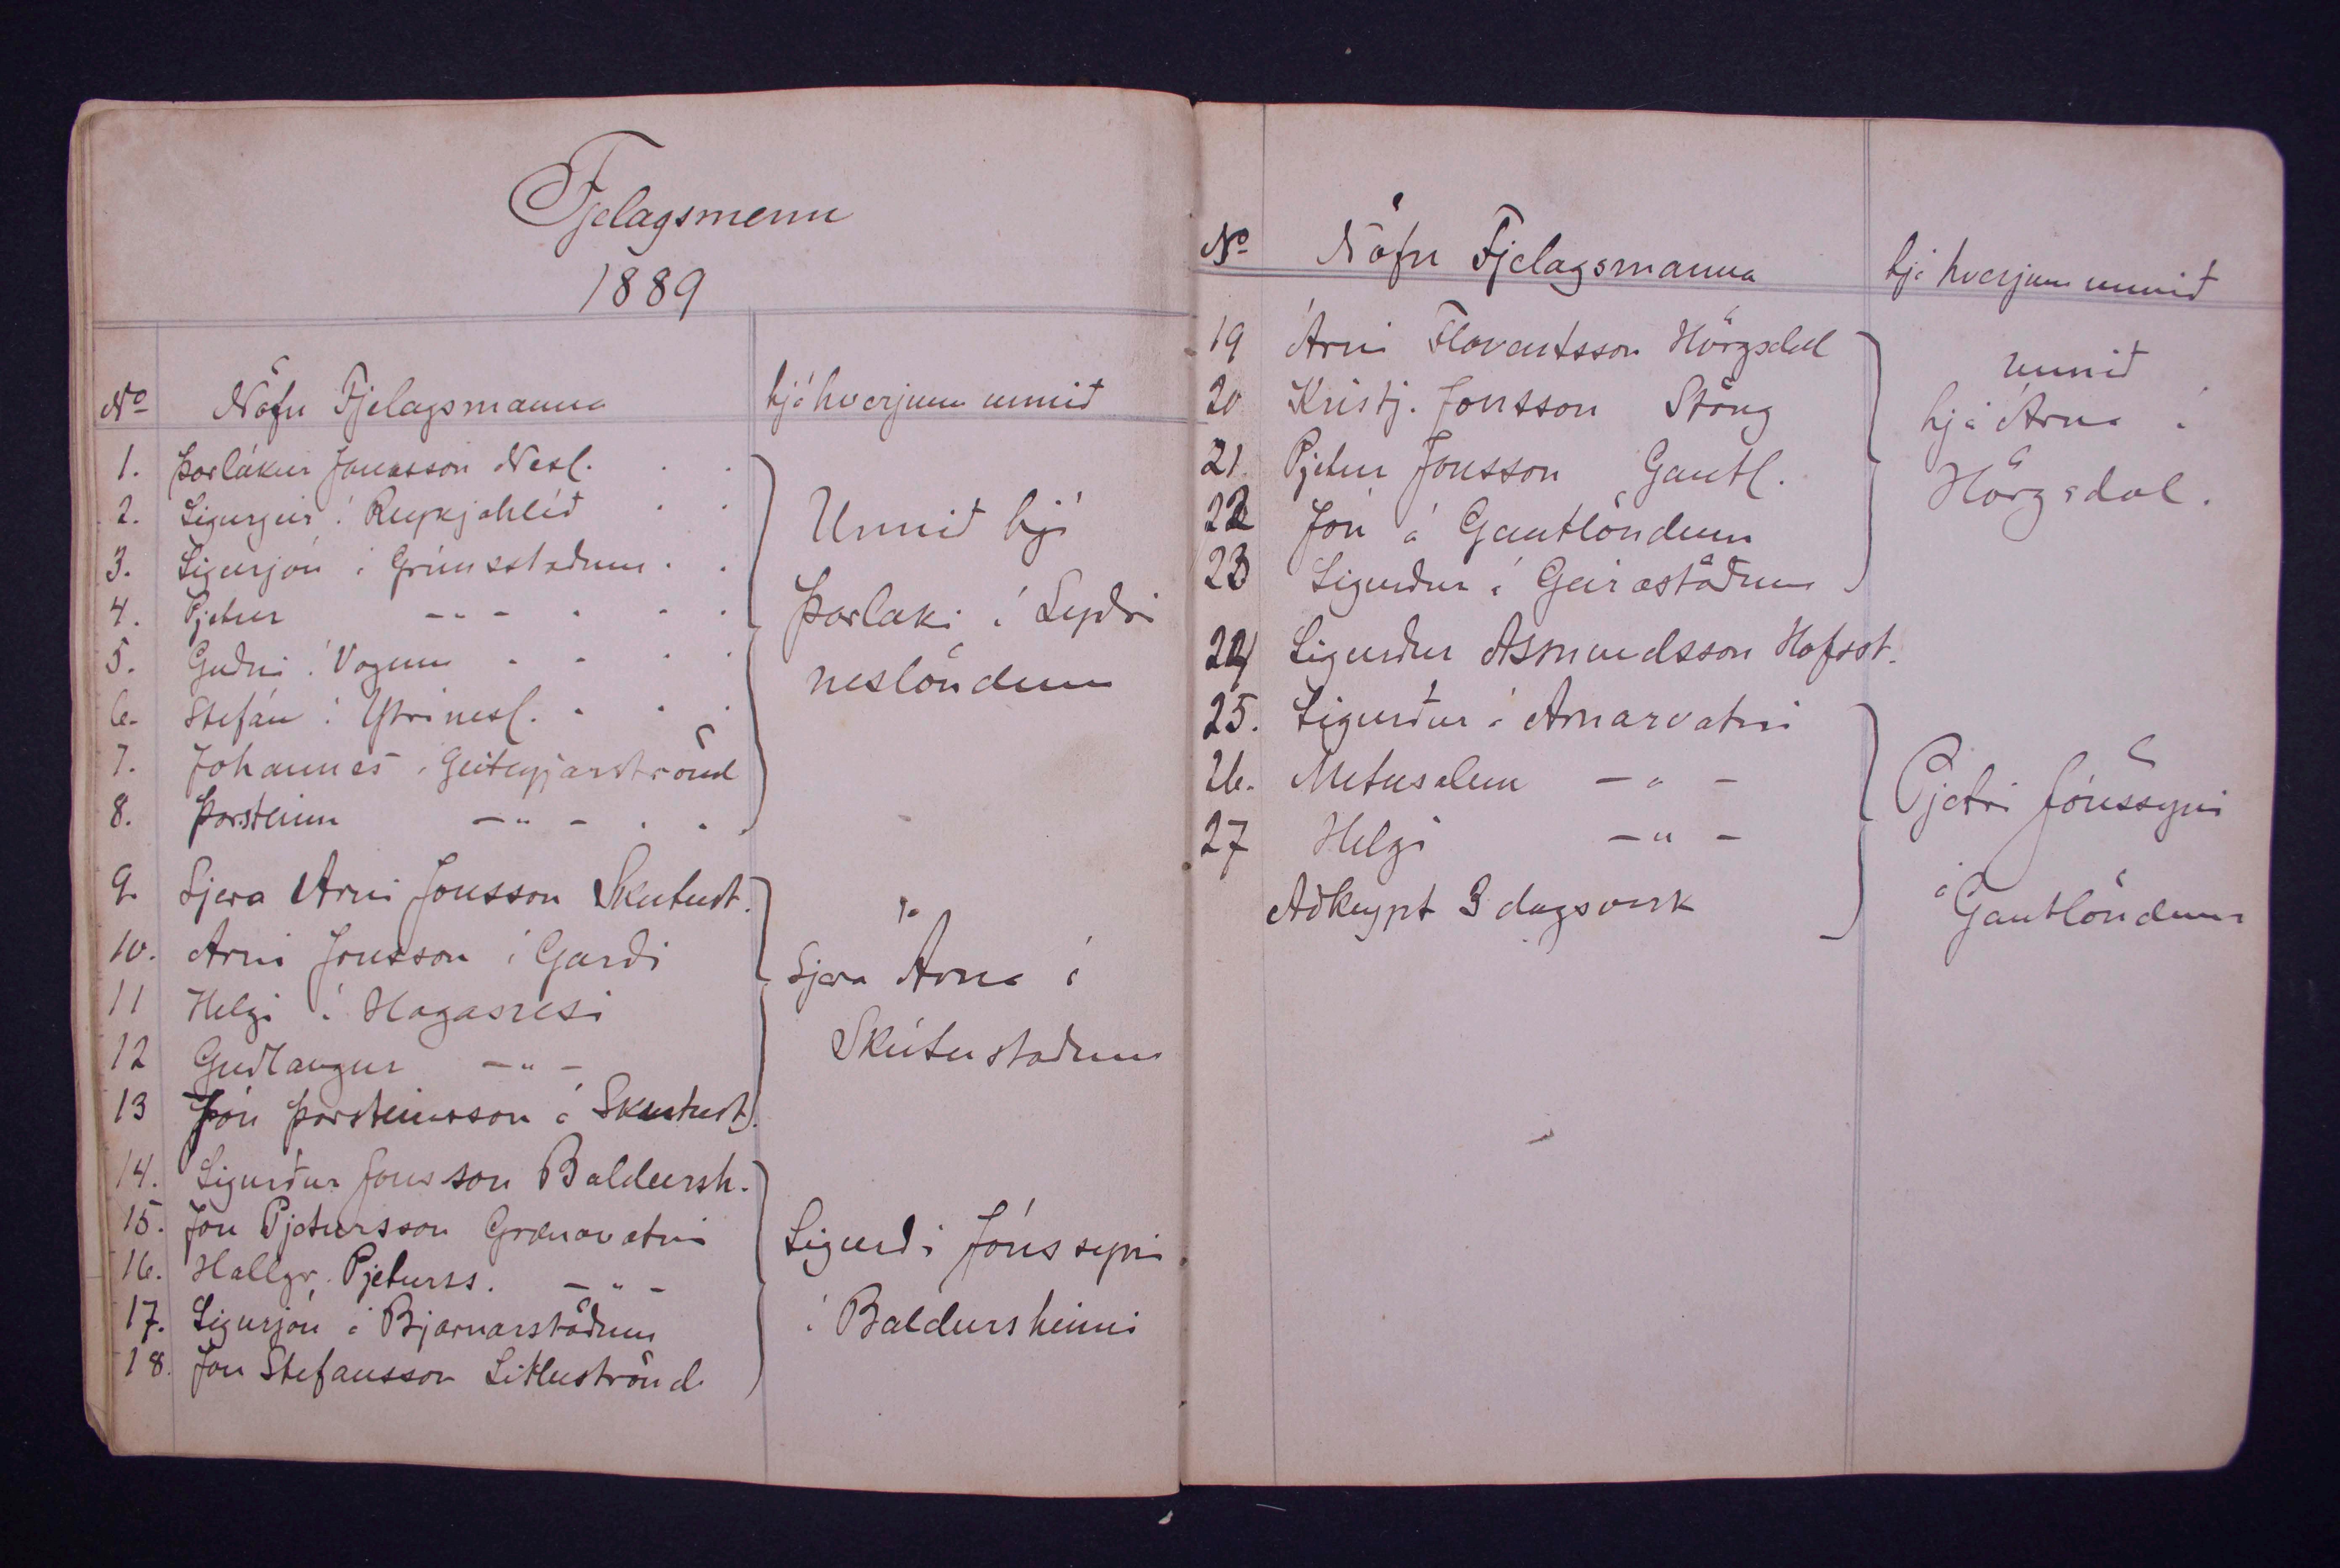 Fjelagsmenn
1889
No Nöfn Fjelagsmanna hjá hverjum unnið
1. Þorlákur Jónasson Nesl. . .
2. Sigurgeir í Reykjahlíð . .
3. Sigurjón á Grímsstaðum . .
4. Pjetur -"- . . .
5. Guðni í Vogum . . . .
6. Stefán í Ytrinesl. . . .
7. Jóhannes í Geiteyjarströnd
8. Þorsteinn -"- . . .
Unnið hjá
Þorláki í Syðri
neslöndum
9. Sjera Árni Jónsson Skútust.
10. Árni Jónsson í Garði
11 Helgi í Haganesi
12 Guðlaugur -"-
13 Jón Þorsteinsson á Skutust.
"
Sjera Árna á
Skútustaðum
14. Sigurður Jónsson Baldursh.
15. Jón Pjetursson Grænavatni
16. Hallgr. Pjeturss. -"-
17. Sigurjón á Bjarnarstöðum
18. Jón Stefánsson Litluströnd
Sigurði Jónssyni
í Baldursheimi
No Nöfn Fjelagsmanna hjá hverjum unnið
19 Árni Flóventsson Hörgsdal
20 Kristj. Jónsson Stöng
21. Pjetur Jónsson Gautl.
22 Jón á Gautlöndum
23 Sigurður á Geirastöðum
unnið
hjá Árna í
Hörgsdal.
24 Sigurður Ásmundsson Hofsst.
25. Sigurður á Arnarvatni
26. Metusalem -"-
27 Helgi -"-
Aðkeypt 3 dagsverk
Pjetri Jónssyni
á Gautlöndum